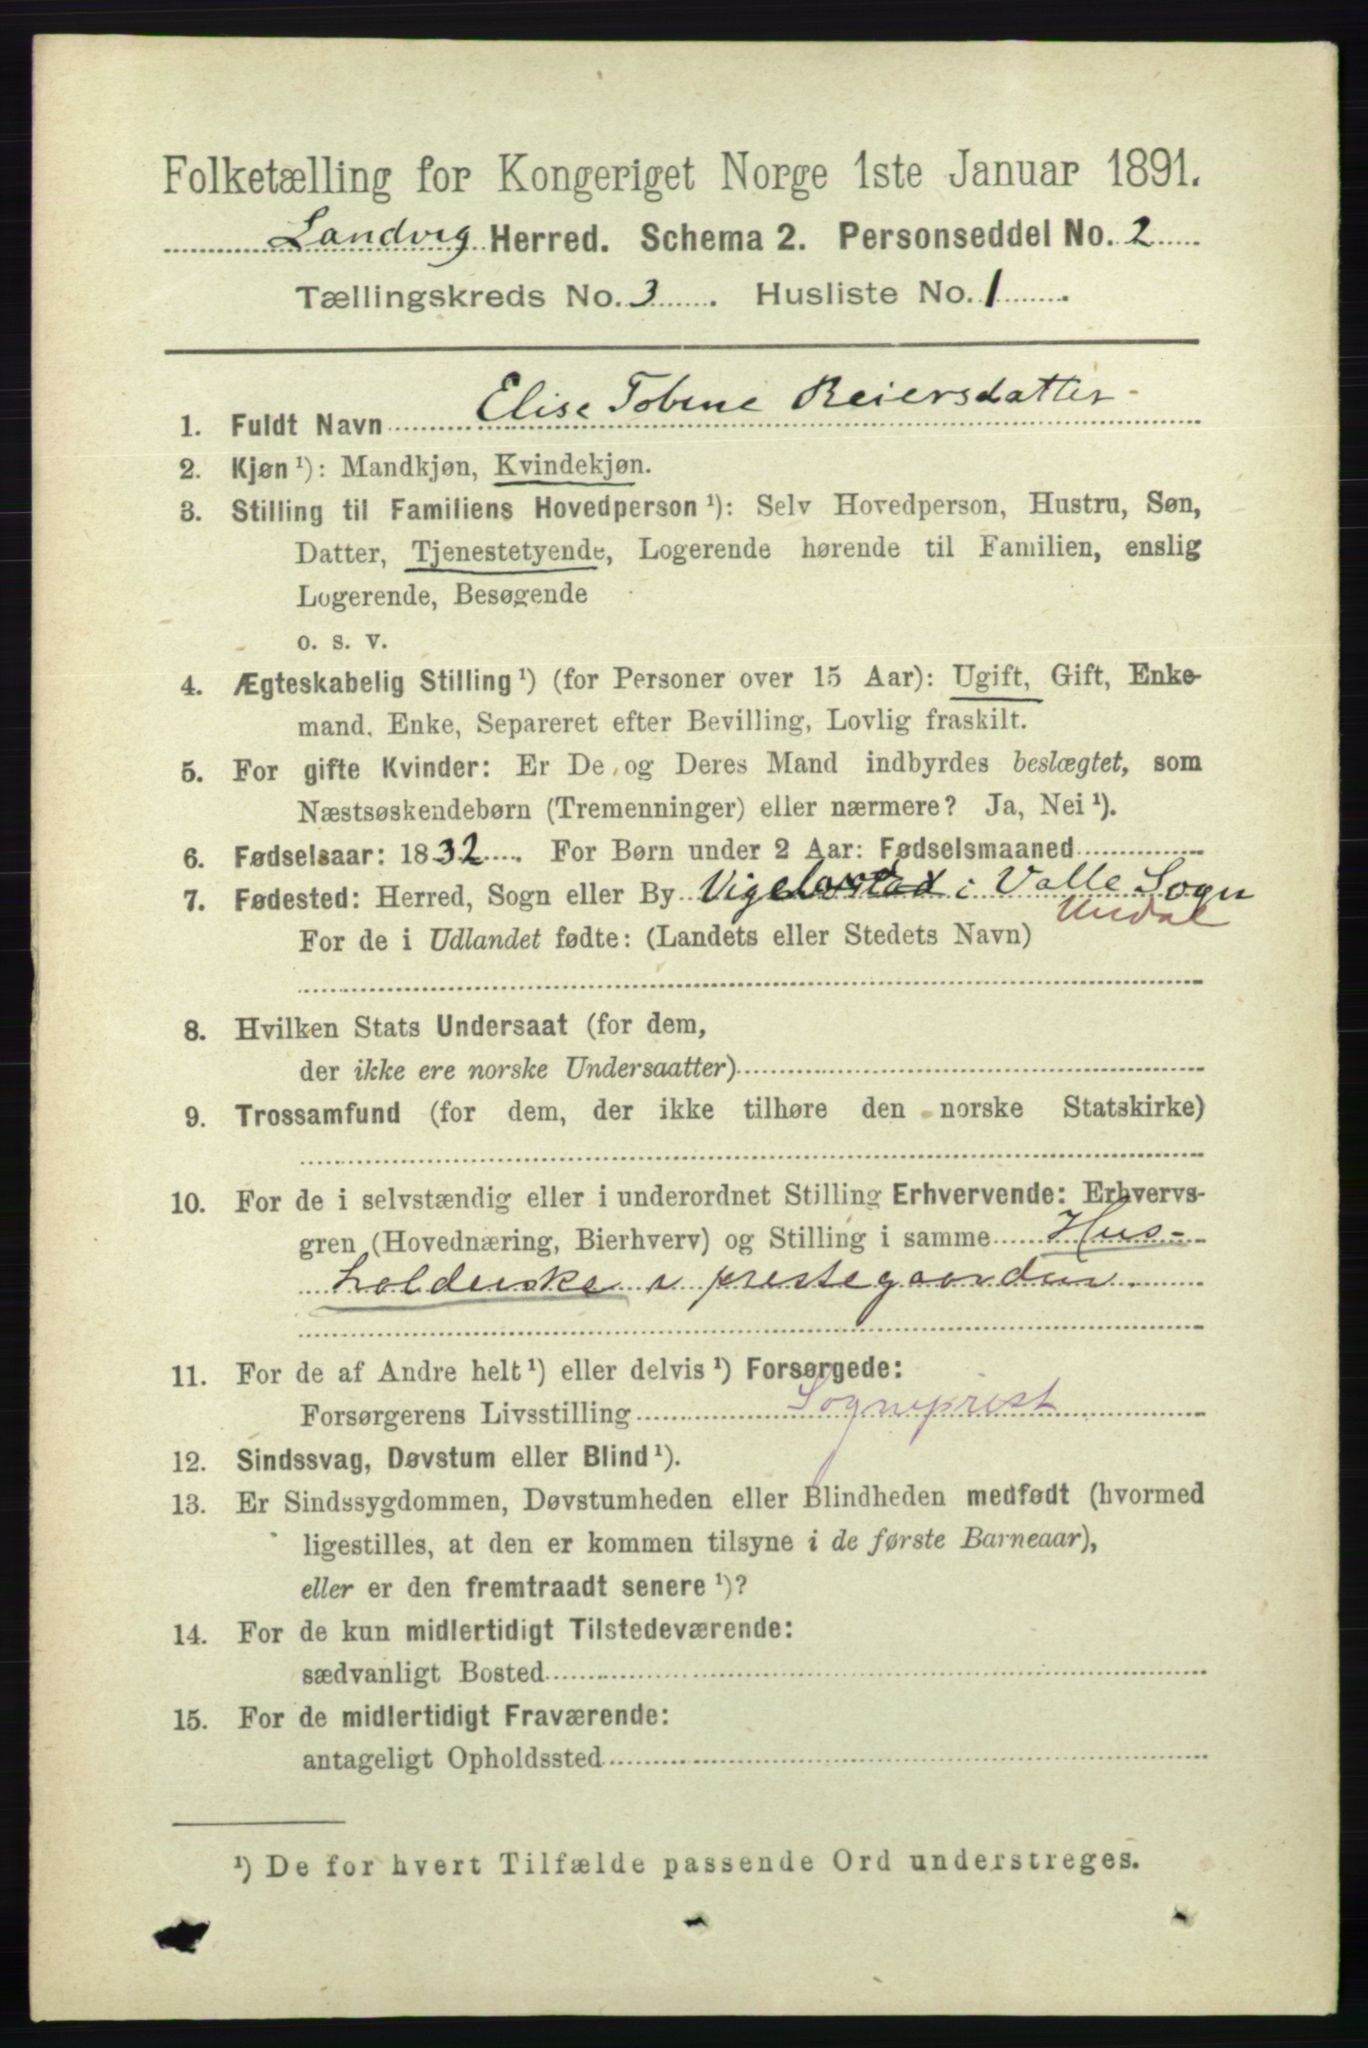 Folketælling for Kongeriget Norge 1ste Januar 1891.
Landvig Herred. Schema 2. Personseddel No. 2
Tællingskreds No. 3. Husliste No. 1.
1. Fuldt Navn Elise Tobine Reiersdatter
2. Kjøn ¹): Mandkjøn, Kvindekjøn.
3. Stilling til Familiens Hovedperson ¹): Selv Hovedperson, Hustru, Søn,
Datter, Tjenestetyende, Logerende hørende til Familien, enslig
Logerende, Besøgende
o. s. v.
4. Ægteskabelig Stilling ¹) (for Personer over 15 Aar): Ugift, Gift, Enke-
mand, Enke, Separeret efter Bevilling, Lovlig fraskilt.
5. For gifte Kvinder: Er De og Deres Mand indbyrdes beslægtet, som
Næstsøskendebørn (Tremenninger) eller nærmere? Ja, Nei ¹).
6. Fødselsaar: 1832. For Børn under 2 Aar: Fødselsmaaned
7. Fødested: Herred, Sogn eller By i Valle Sogn
Undal
For de i Udlandet fødte: (Landets eller Stedets Navn)
8. Hvilken Stats Undersaat (for dem,
der ikke ere norske Undersaatter)
9. Trossamfund (for dem, der ikke tilhøre den norske Statskirke)
10. For de i selvstændig eller i underordnet Stilling Erhvervende: Erhvervs-
gren (Hovednæring, Bierhverv) og Stilling i samme Hus-
holderske i prestegaarden.
11. For de af Andre helt ¹) eller delvis ¹) Forsørgede:
Forsørgerens Livsstilling Sogneprest
12. Sindssvag, Døvstum eller Blind ¹).
13. Er Sindssygdommen, Døvstumheden eller Blindheden medfødt (hvormed
ligestilles, at den er kommen tilsyne i de første Barneaar),
eller er den fremtraadt senere ¹)?
14. For de kun midlertidigt Tilstedeværende:
sædvanligt Bosted
15. For de midlertidigt Fraværende:
antageligt Opholdssted
¹) De for hvert Tilfælde passende Ord understreges.